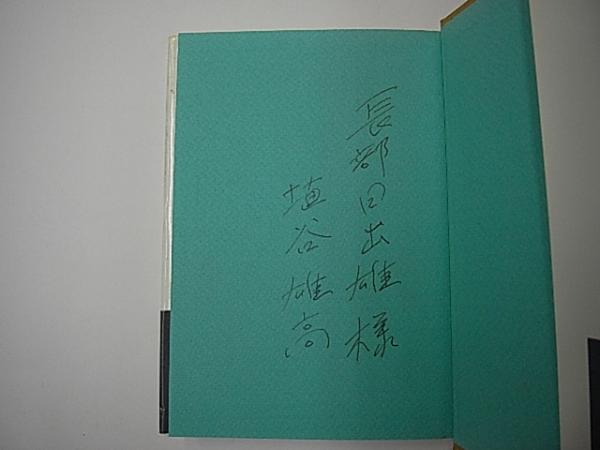 長部日出雄様
埴谷雄高